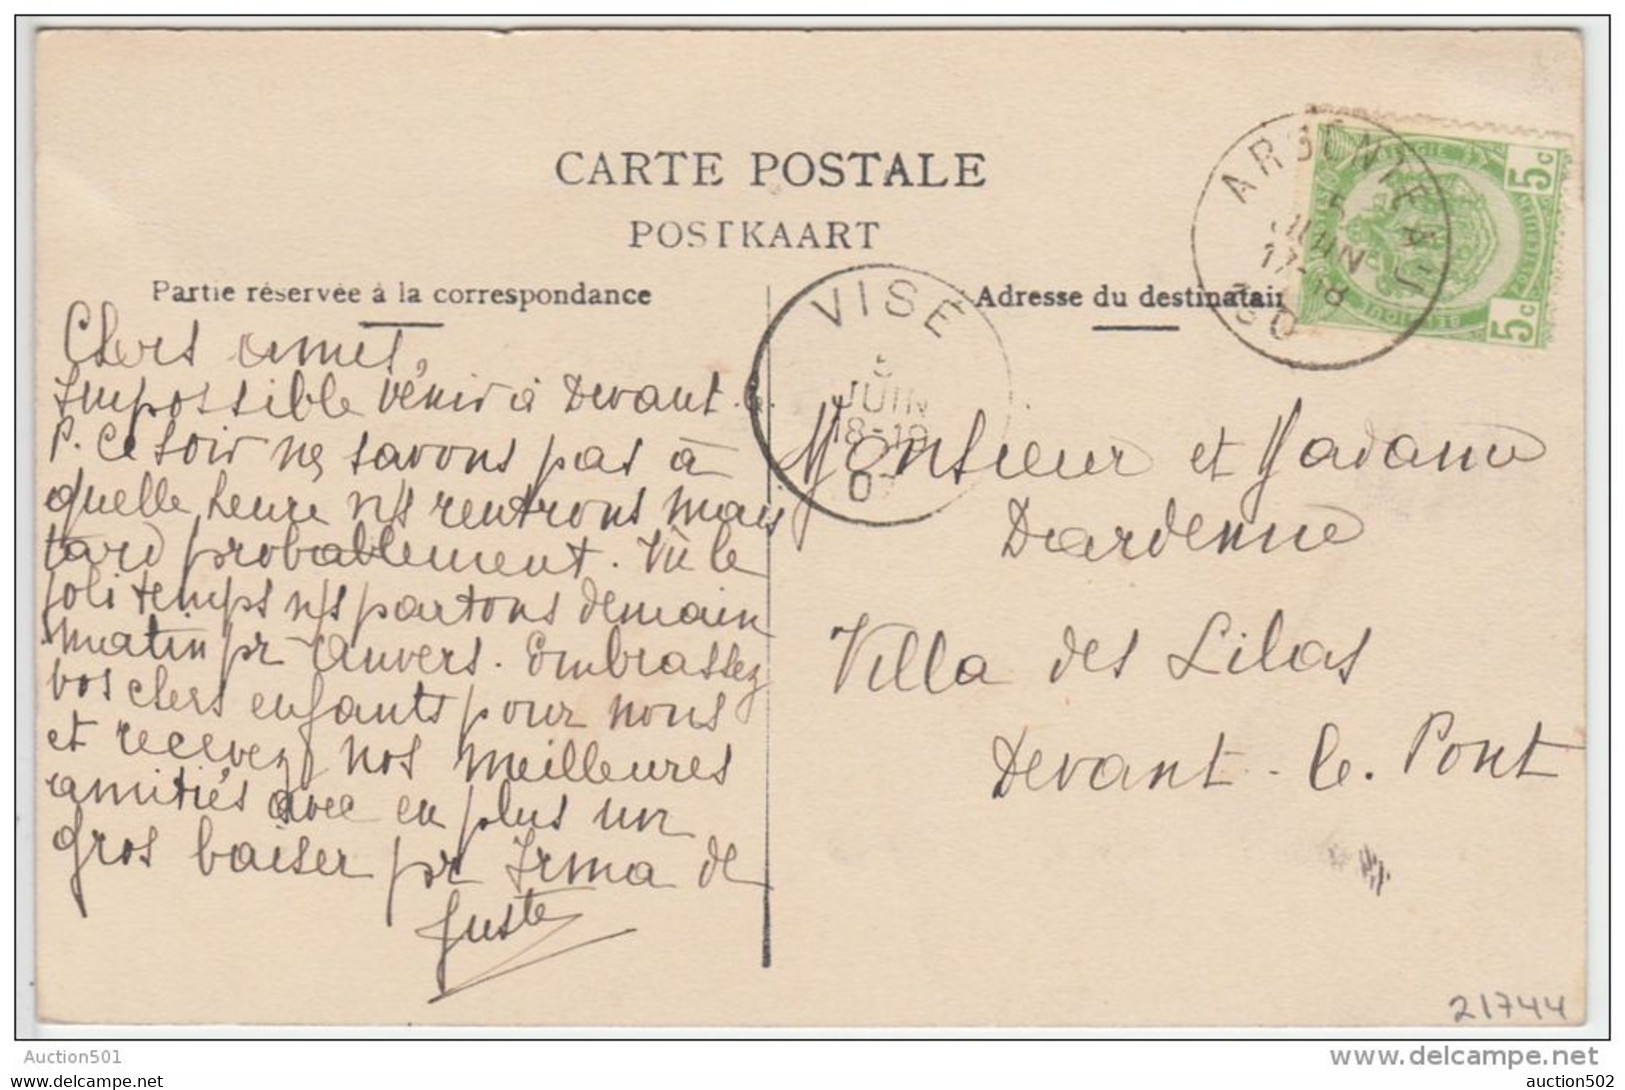 CARTE POSTALE
POSTKAART
Partie réservée à la correspondance
Adresse du destinatair
ARGENTEAU
5
JUIN
17-18
VISE
5
JUIN
18-19
07
BELGIQUE
5c
5c
Chers amis,
Impossible vénir à Devant-le-
P. Ce soir ns savons pas à
quelle heure ns rentrons mais
tard probablement. Vu le
joli temps ns partons demain
matin pr Anvers. Embrassez
vos chers enfants pour nous
et recevez nos meilleures
amitiés avec en plus un
gros baiser pr Irma de
Juste
Monsieur et Madame
Dardenne
Villa des Lilas
Devant-le-Pont
21744
Auction501
auction501
www.delcampe.net
auction502